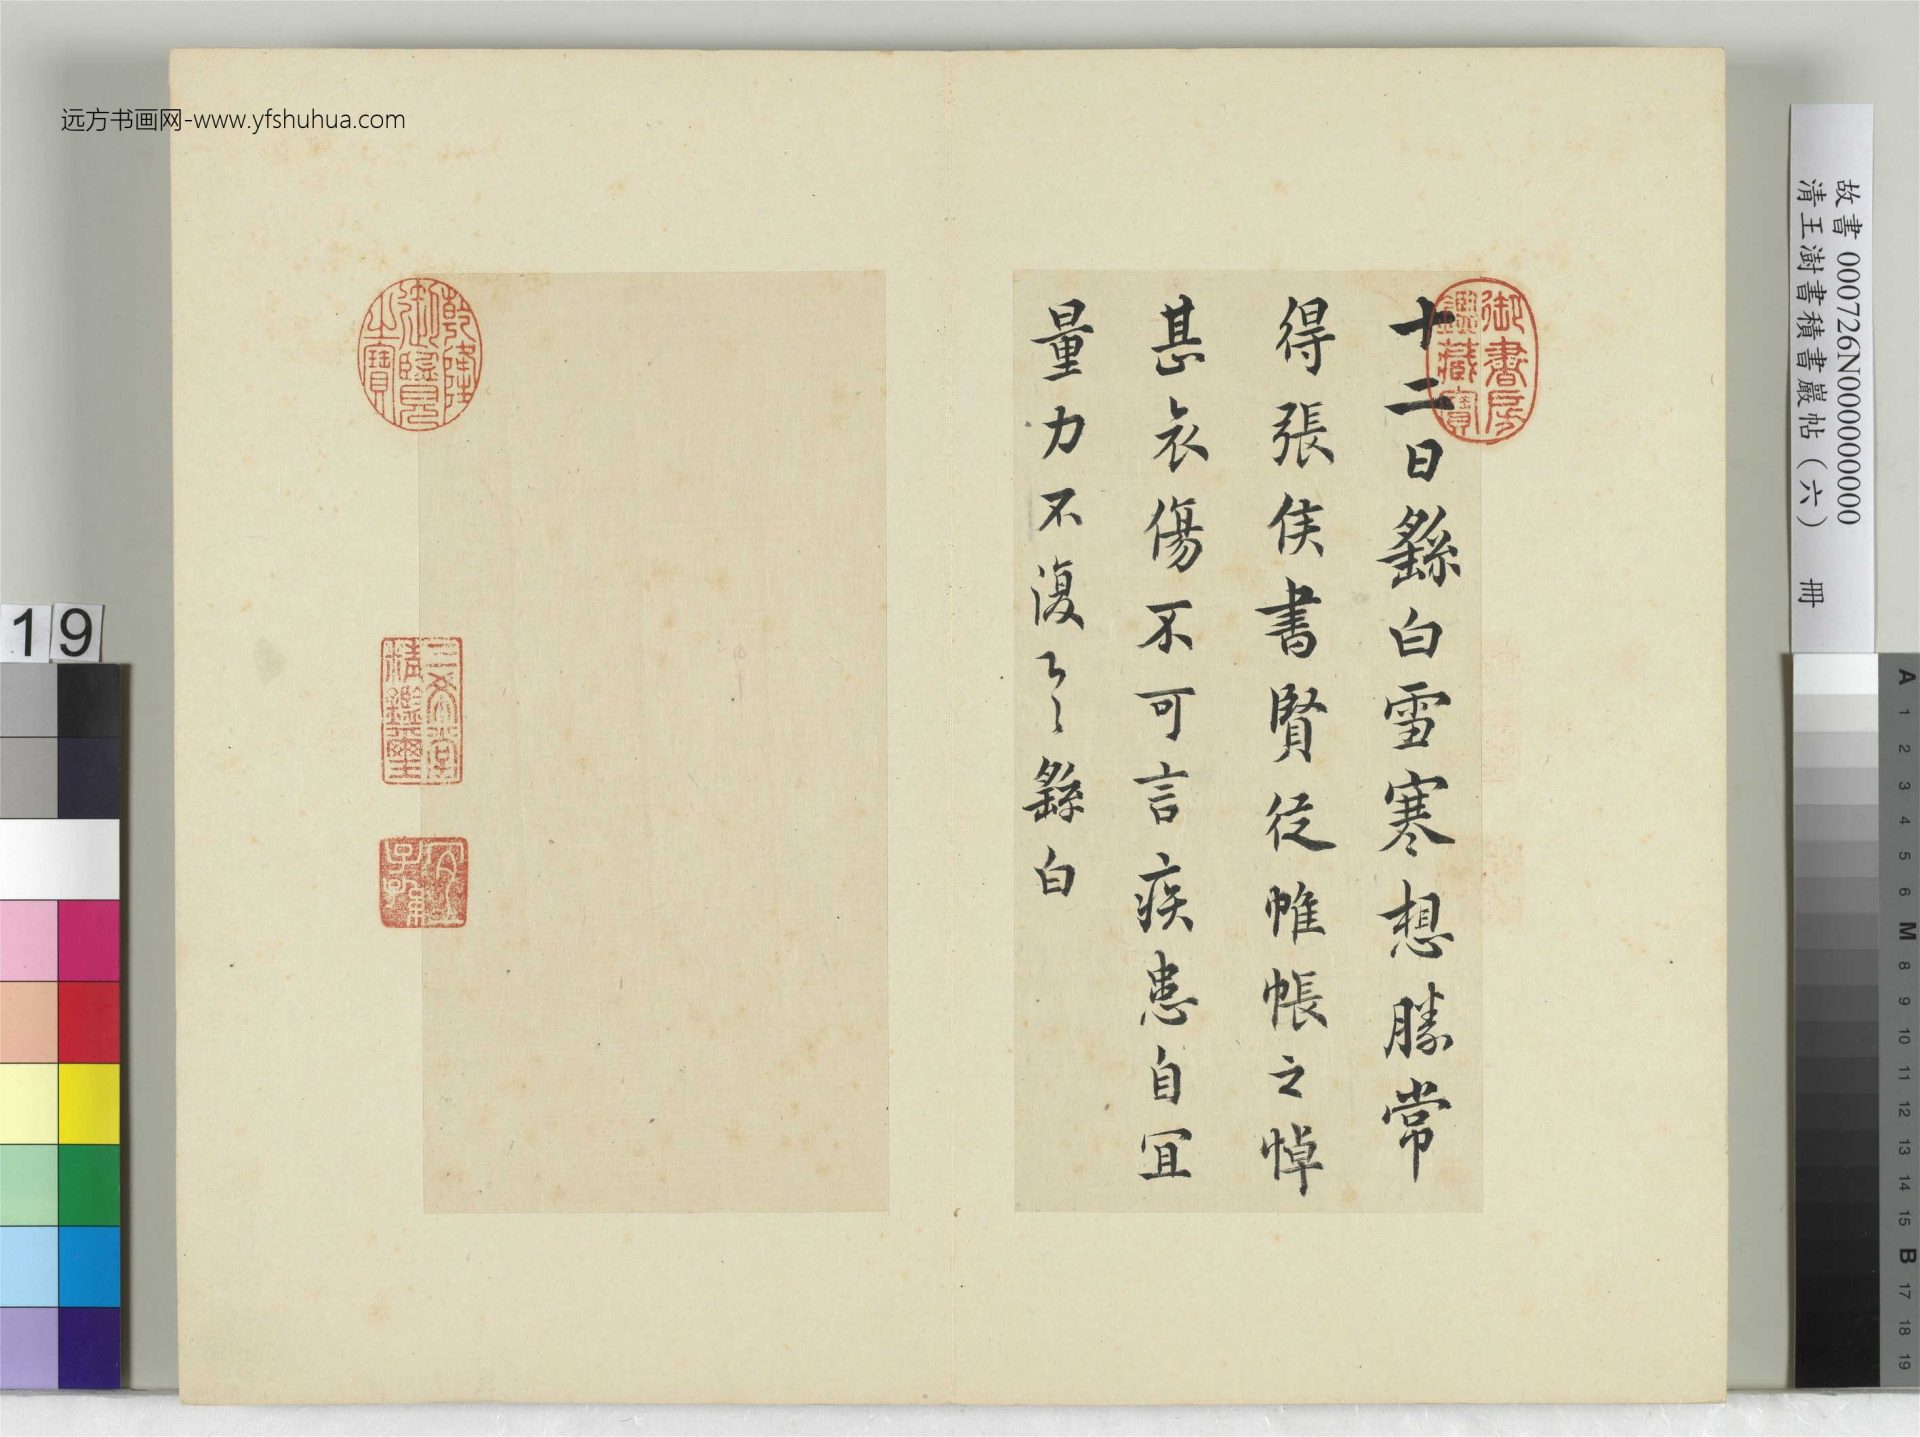 十二日繇白雪寒想勝常
得張侯書賢從帷帳之悼
甚哀傷不可言疾患自宜
量力不復具繇白
御書房鑑藏寶
乾隆御覽之寶
三希堂精鑑璽
宜子孫
故書 000726N000000000
清王澍書積書巖帖（六） 冊
远方书画网-www.yfshuhua.com
19
A 1 2 3 4 5 6 M 8 9 10 11 12 13 14 15 B 17 18 19